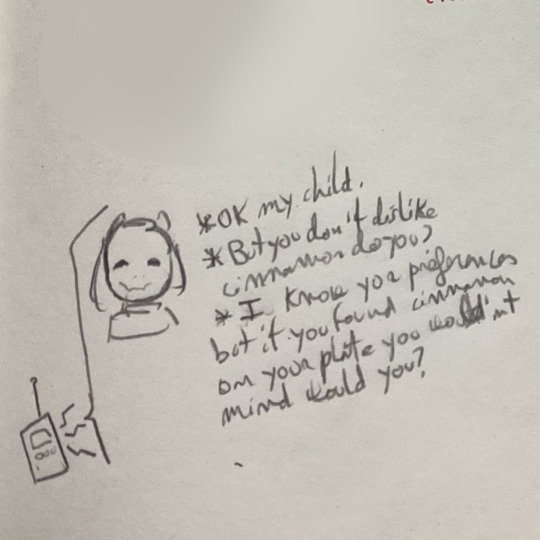 *OK my child.
*But you don't dislike
cinnamon do you?
*I know you preferences
but if you found cinnamon
on your plate you wouldn't
mind would you?